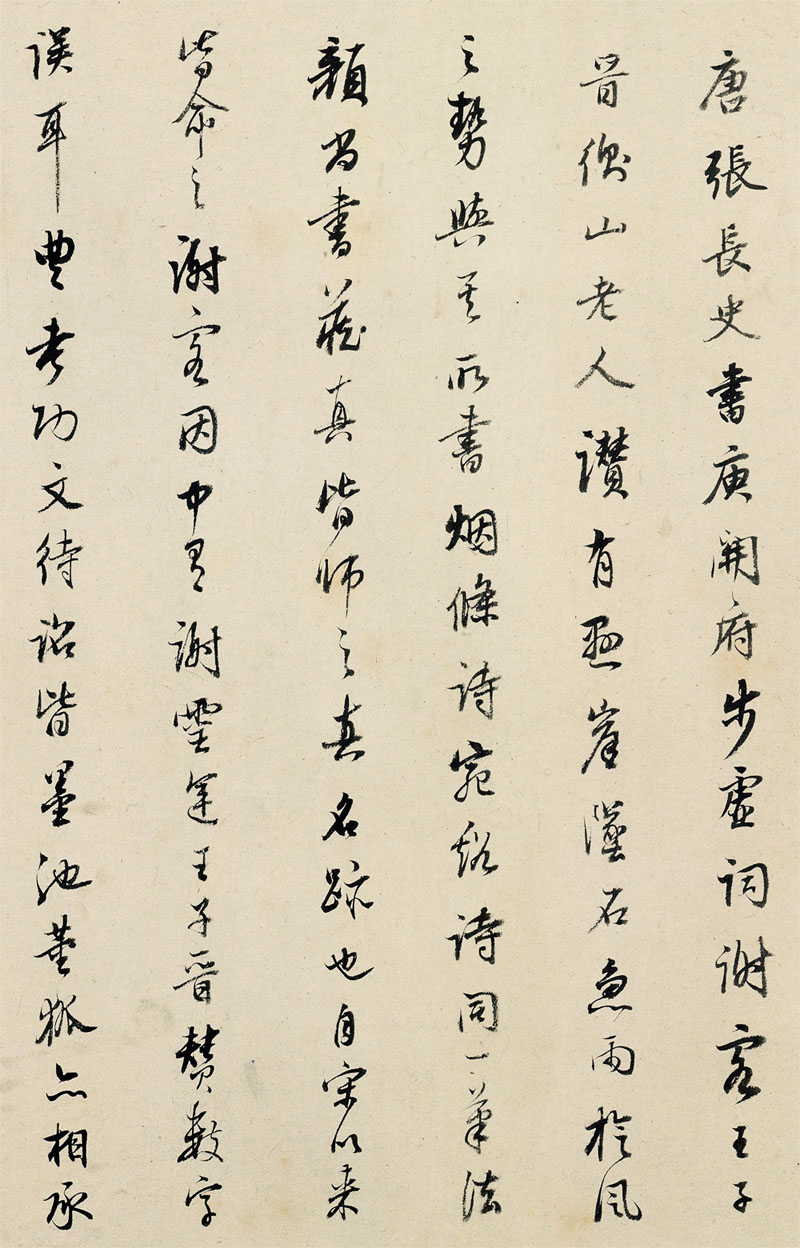 唐張長史書庾開府步虛詞謝客王子
晉衡山老人讚有懸崖墜石急雨旋風
之勢與其所書烟條詩宛谿詩同一筆法
顏尚書藏真皆師之真名跡也自宋以來
皆命之謝客因中有謝靈運王子晉贊數字
誤耳豐考功文待詔皆墨池董狐亦相承